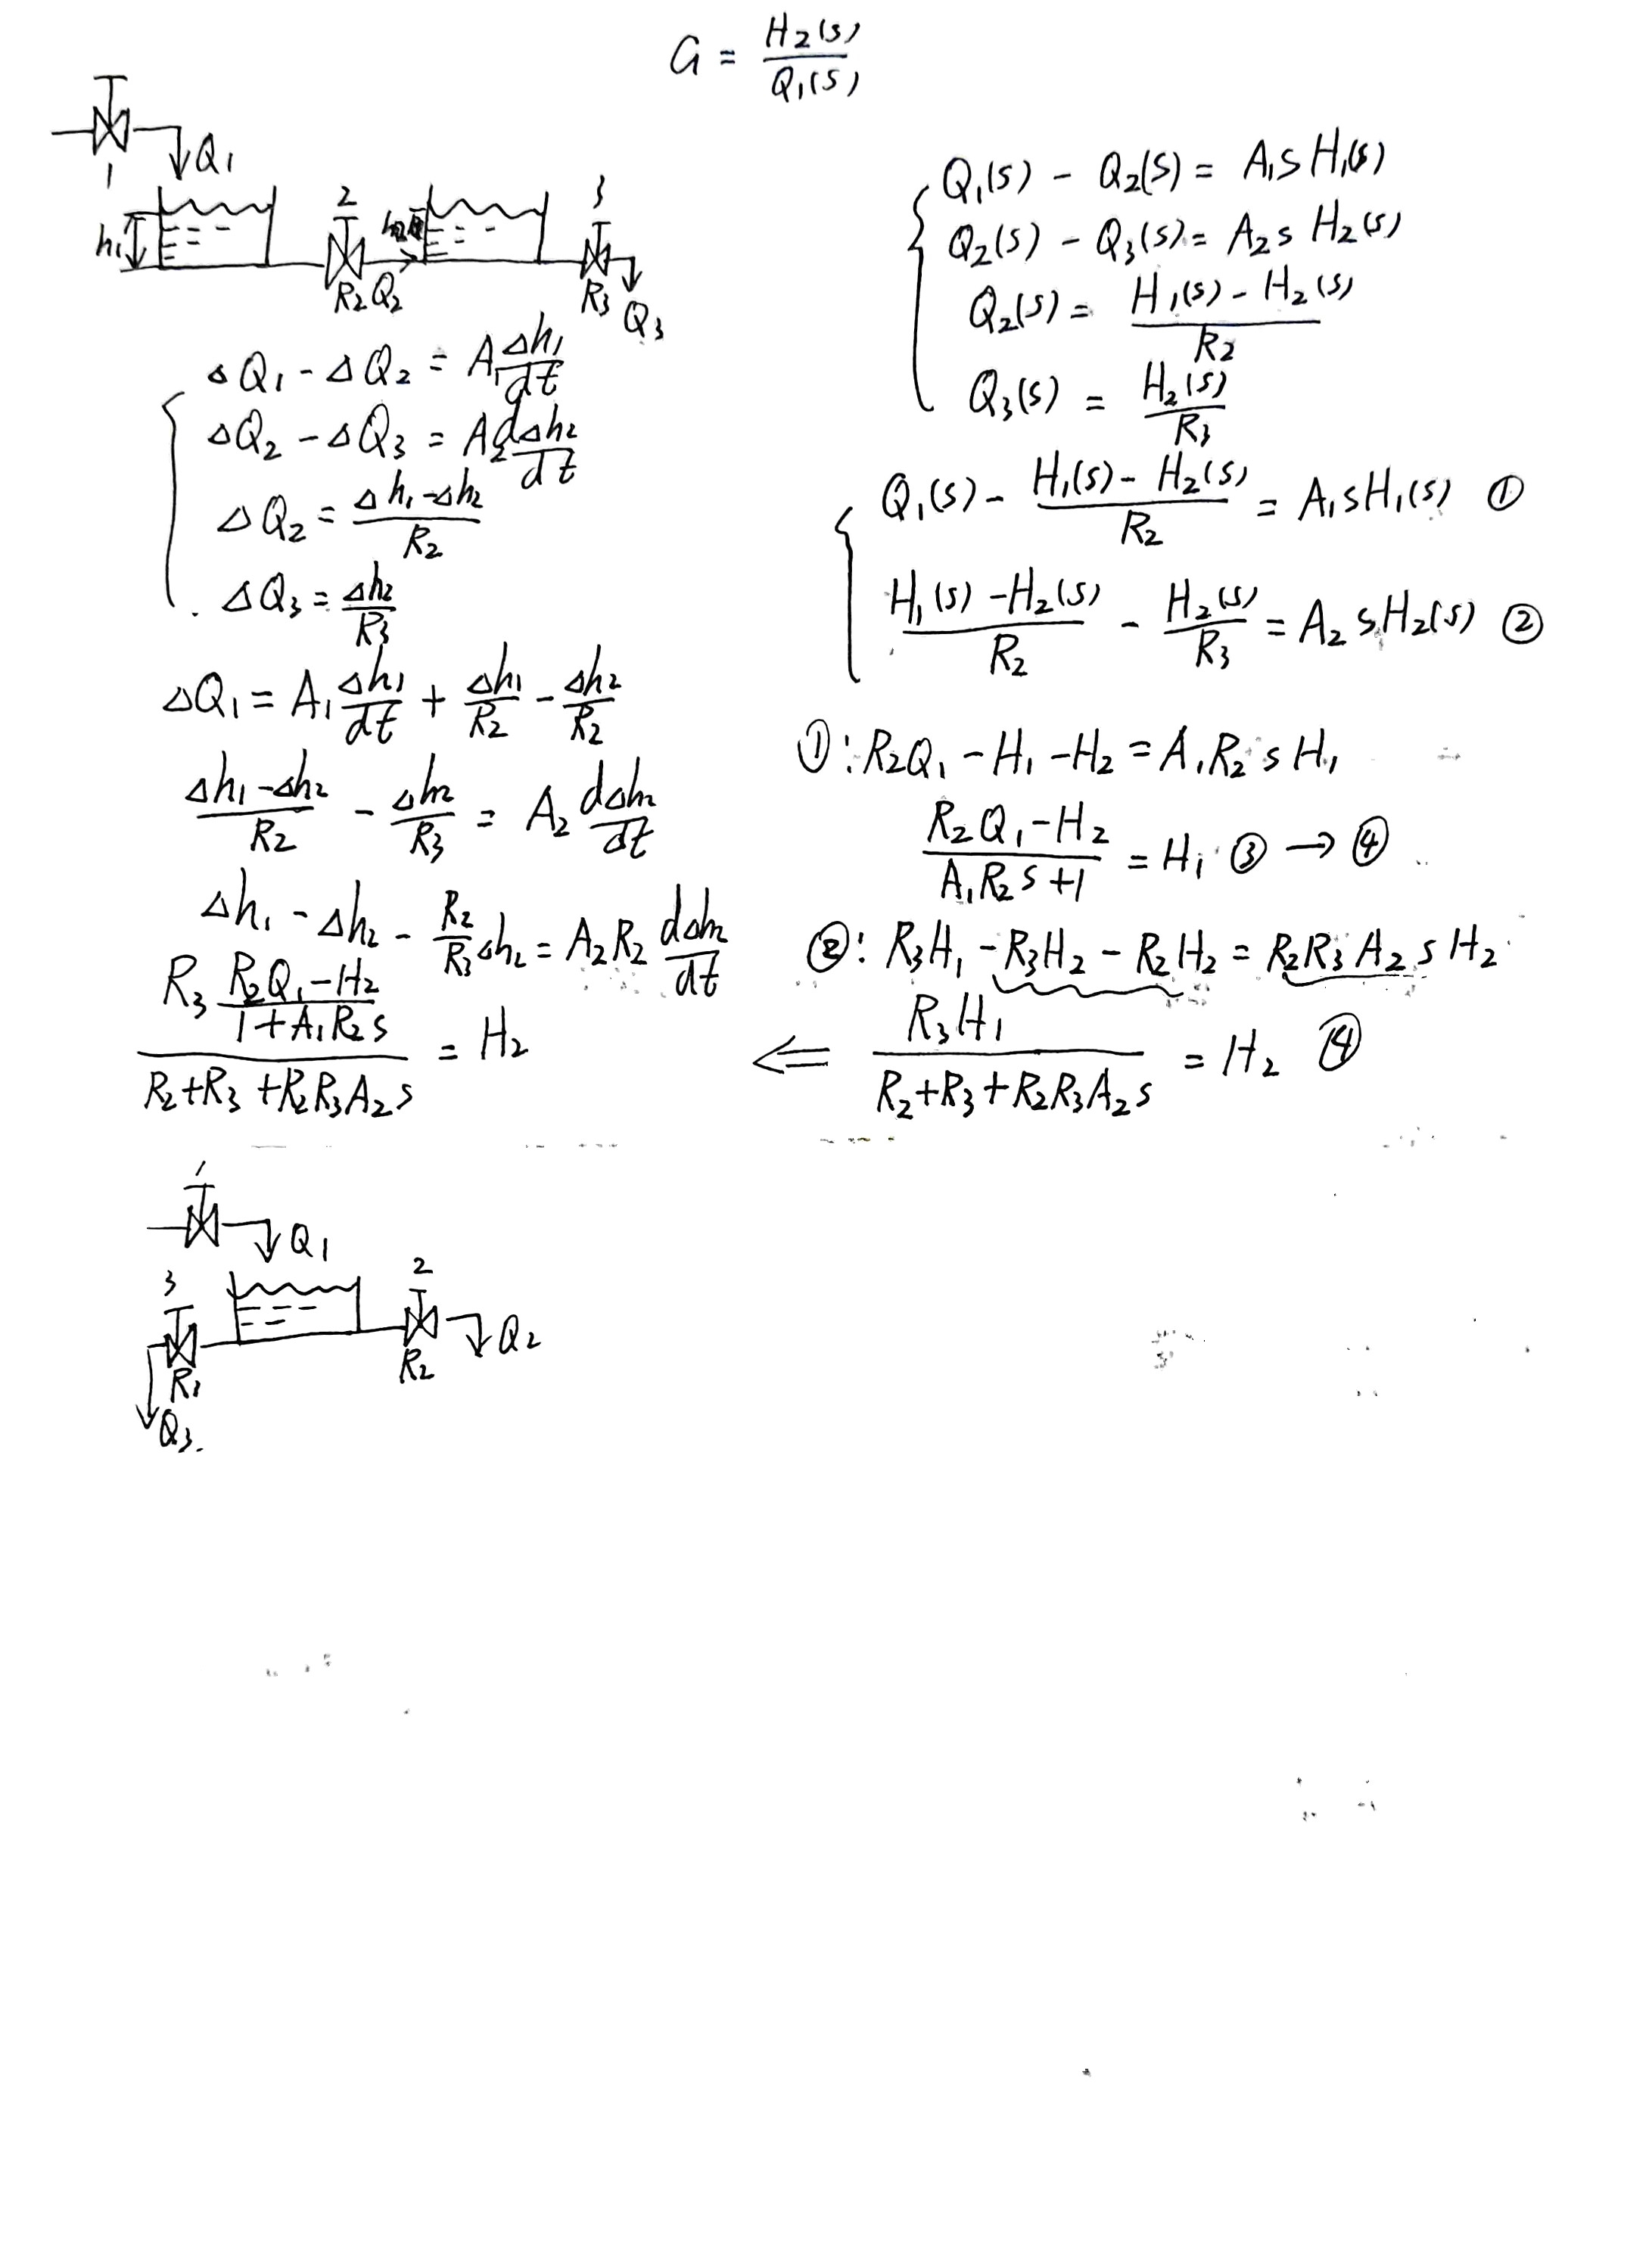 G = H₂(s) / Q₁(s)
1
Q₁
h₁
2
R₂ Q₂
h₂
3
R₃
Q₃
ΔQ₁ - ΔQ₂ = A₁ Δh₁/dt
ΔQ₂ - ΔQ₃ = A₂ dΔh₂/dt
ΔQ₂ = (Δh₁ - Δh₂)/R₂
ΔQ₃ = Δh₂/R₃
ΔQ₁ = A₁ Δh₁/dt + Δh₁/R₂ - Δh₂/R₂
(Δh₁ - Δh₂)/R₂ - Δh₂/R₃ = A₂ dΔh₂/dt
Δh₁ - Δh₂ - R₂/R₃ Δh₂ = A₂R₂ dΔh₂/dt
Q₁(s) - Q₂(s) = A₁sH₁(s)
Q₂(s) - Q₃(s) = A₂sH₂(s)
Q₂(s) = (H₁(s) - H₂(s))/R₂
Q₃(s) = H₂(s)/R₃
Q₁(s) - (H₁(s) - H₂(s))/R₂ = A₁sH₁(s) ①
(H₁(s) - H₂(s))/R₂ - H₂(s)/R₃ = A₂sH₂(s) ②
①: R₂Q₁ - H₁ - H₂ = A₁R₂sH₁
(R₂Q₁ - H₂)/(A₁R₂s + 1) = H₁ ③ → ④
②: R₃H₁ - R₃H₂ - R₂H₂ = R₂R₃A₂sH₂
R₃H₁/(R₂ + R₃ + R₂R₃A₂s) = H₂ ④
⇐
R₃ (R₂Q₁ - H₂)/(1 + A₁R₂s) / (R₂ + R₃ + R₂R₃A₂s) = H₂
1
Q₁
3
2
R₃
R₂
Q₂
Q₃.